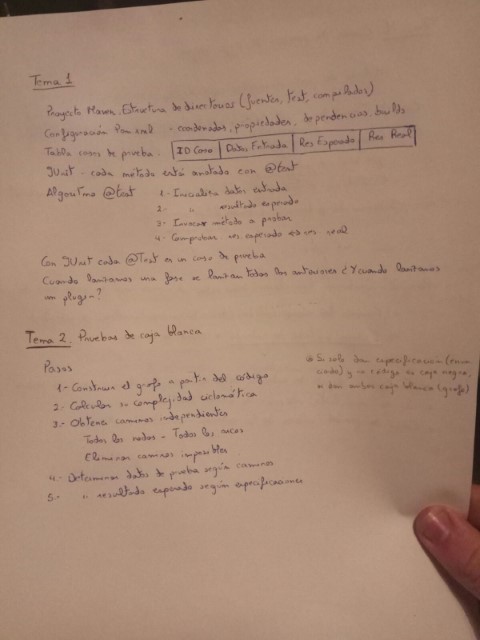 Tema 1
Proyecto Maven. Estructura de directorios (fuentes, test, compilados)
Configuración Pom.xml - coordenadas, propiedades, dependencias, builds
Tabla casos de prueba. ID Caso Datos Entrada Res Esperado Res Real
JUnit - cada método está anotado con @test
Algoritmo @test 1- Inicializa datos entrada
2- " resultado esperado
3- Invocar método a probar
4- Comprobar res esperado es res real
Con JUnit cada @Test es un caso de prueba
Cuando lanzamos una fase se lanzan todas las anteriores ¿Y cuando lanzamos
un plugin?
Tema 2. Pruebas de caja blanca
Pasos
1- Construir el grafo a partir del código
2- Calcular su complejidad ciclomática
3- Obtener caminos independientes
Todos los nodos - Todos los arcos
Eliminar caminos imposibles
4- Determinar datos de prueba según caminos
5- " resultado esperado según especificaciones
* Si solo dan especificación (enun
ciado) y no código es caja negra,
si dan ambos caja blanca (grafo)